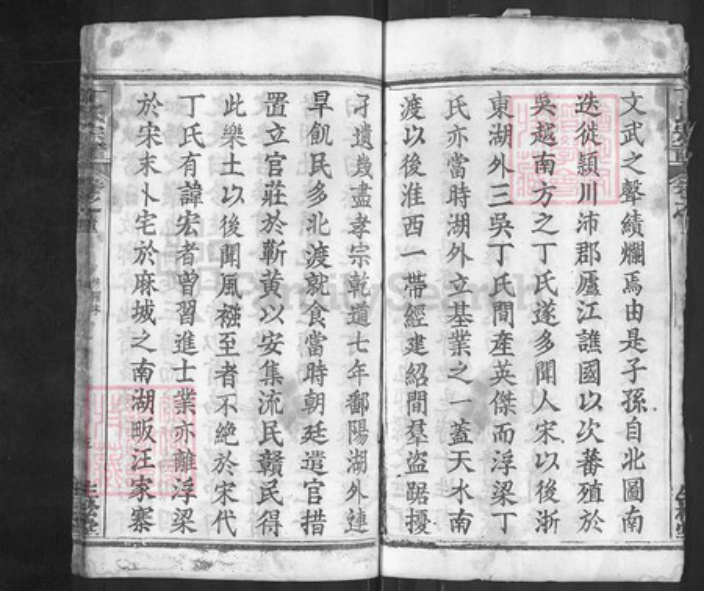 文武之聲績爛焉由是子孫自北圖南
迭徙頴川沛郡廬江譙國以次蕃殖於
吳越南方之丁氏遂多聞人宋以後浙
東湖外三吳丁氏間產英傑而浮梁丁
氏亦當時湖外立基業之一蓋天水南
渡以後淮西一帶經建紹間羣盜踞擾
孑遺幾盡孝宗乾道七年鄱陽湖外連
旱飢民多北渡就食當時朝廷遣官措
置立官莊於蘄黃以安集流民贛民得
此樂土以後聞風襁至者不絕於宋代
丁氏有諱宏者曾習進士業亦離浮梁
於宋末卜宅於麻城之南湖畈汪家寨